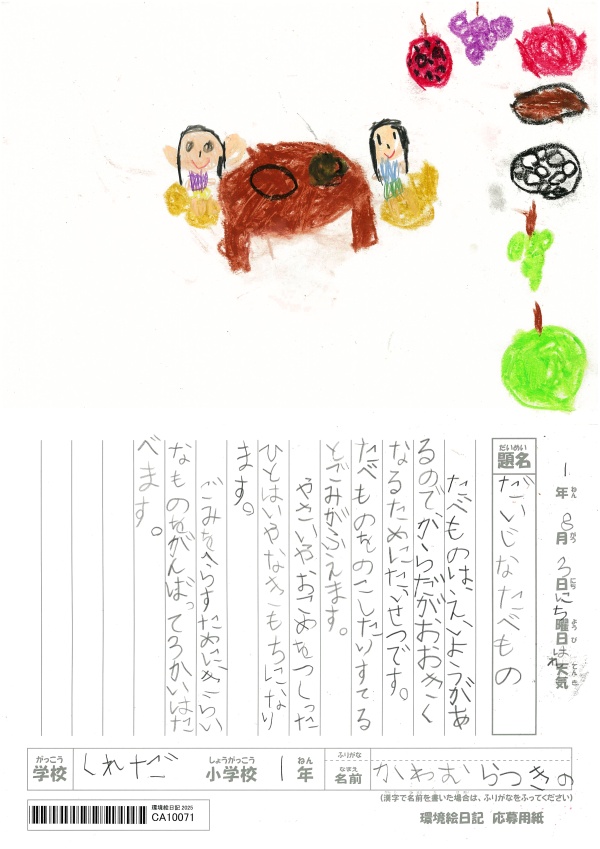 1年8月3日にち曜日はれ天気
ねん がつ にち ようび てんき
だいめい
題名 だいじなたべもの
たべものは、えいようがあ
るのでからだがおおきく
なるためにたいせつです。
たべものをのこしたりすてる
とごみがふえます。
やさいやおこめをつくった
ひとはいやなきもちになり
ます。
ごみをへらすためにきらい
なものをがんばって3かいはた
べます。
がっこう
学校 くれなだ
しょうがっこう
小学校 1年
ねん
ふりがな
なまえ
名前 かわむらつきの
(漢字で名前を書いた場合は、ふりがなをふってください)
環境絵日記 2025
CA10071
環境絵日記 応募用紙